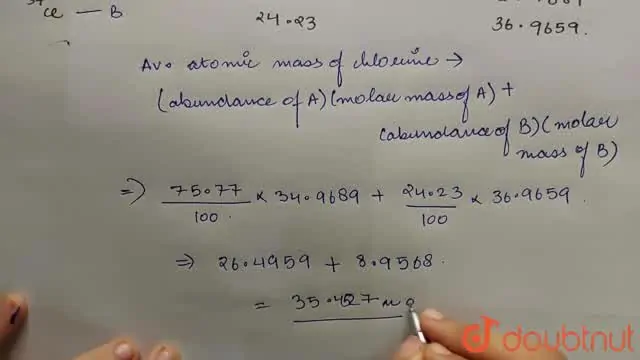 Cl — B 24.23 36.9659.
Avo atomic mass of chlorine →
(abundance of A) (molar mass of A) +
(abundance of B) (molar
mass of B)
⇒) 75.77/100. × 34.9689 + 24.23/100 × 36.9659.
⇒ 26.4959 + 8.9568.
= 35.4527 u
doubtnut